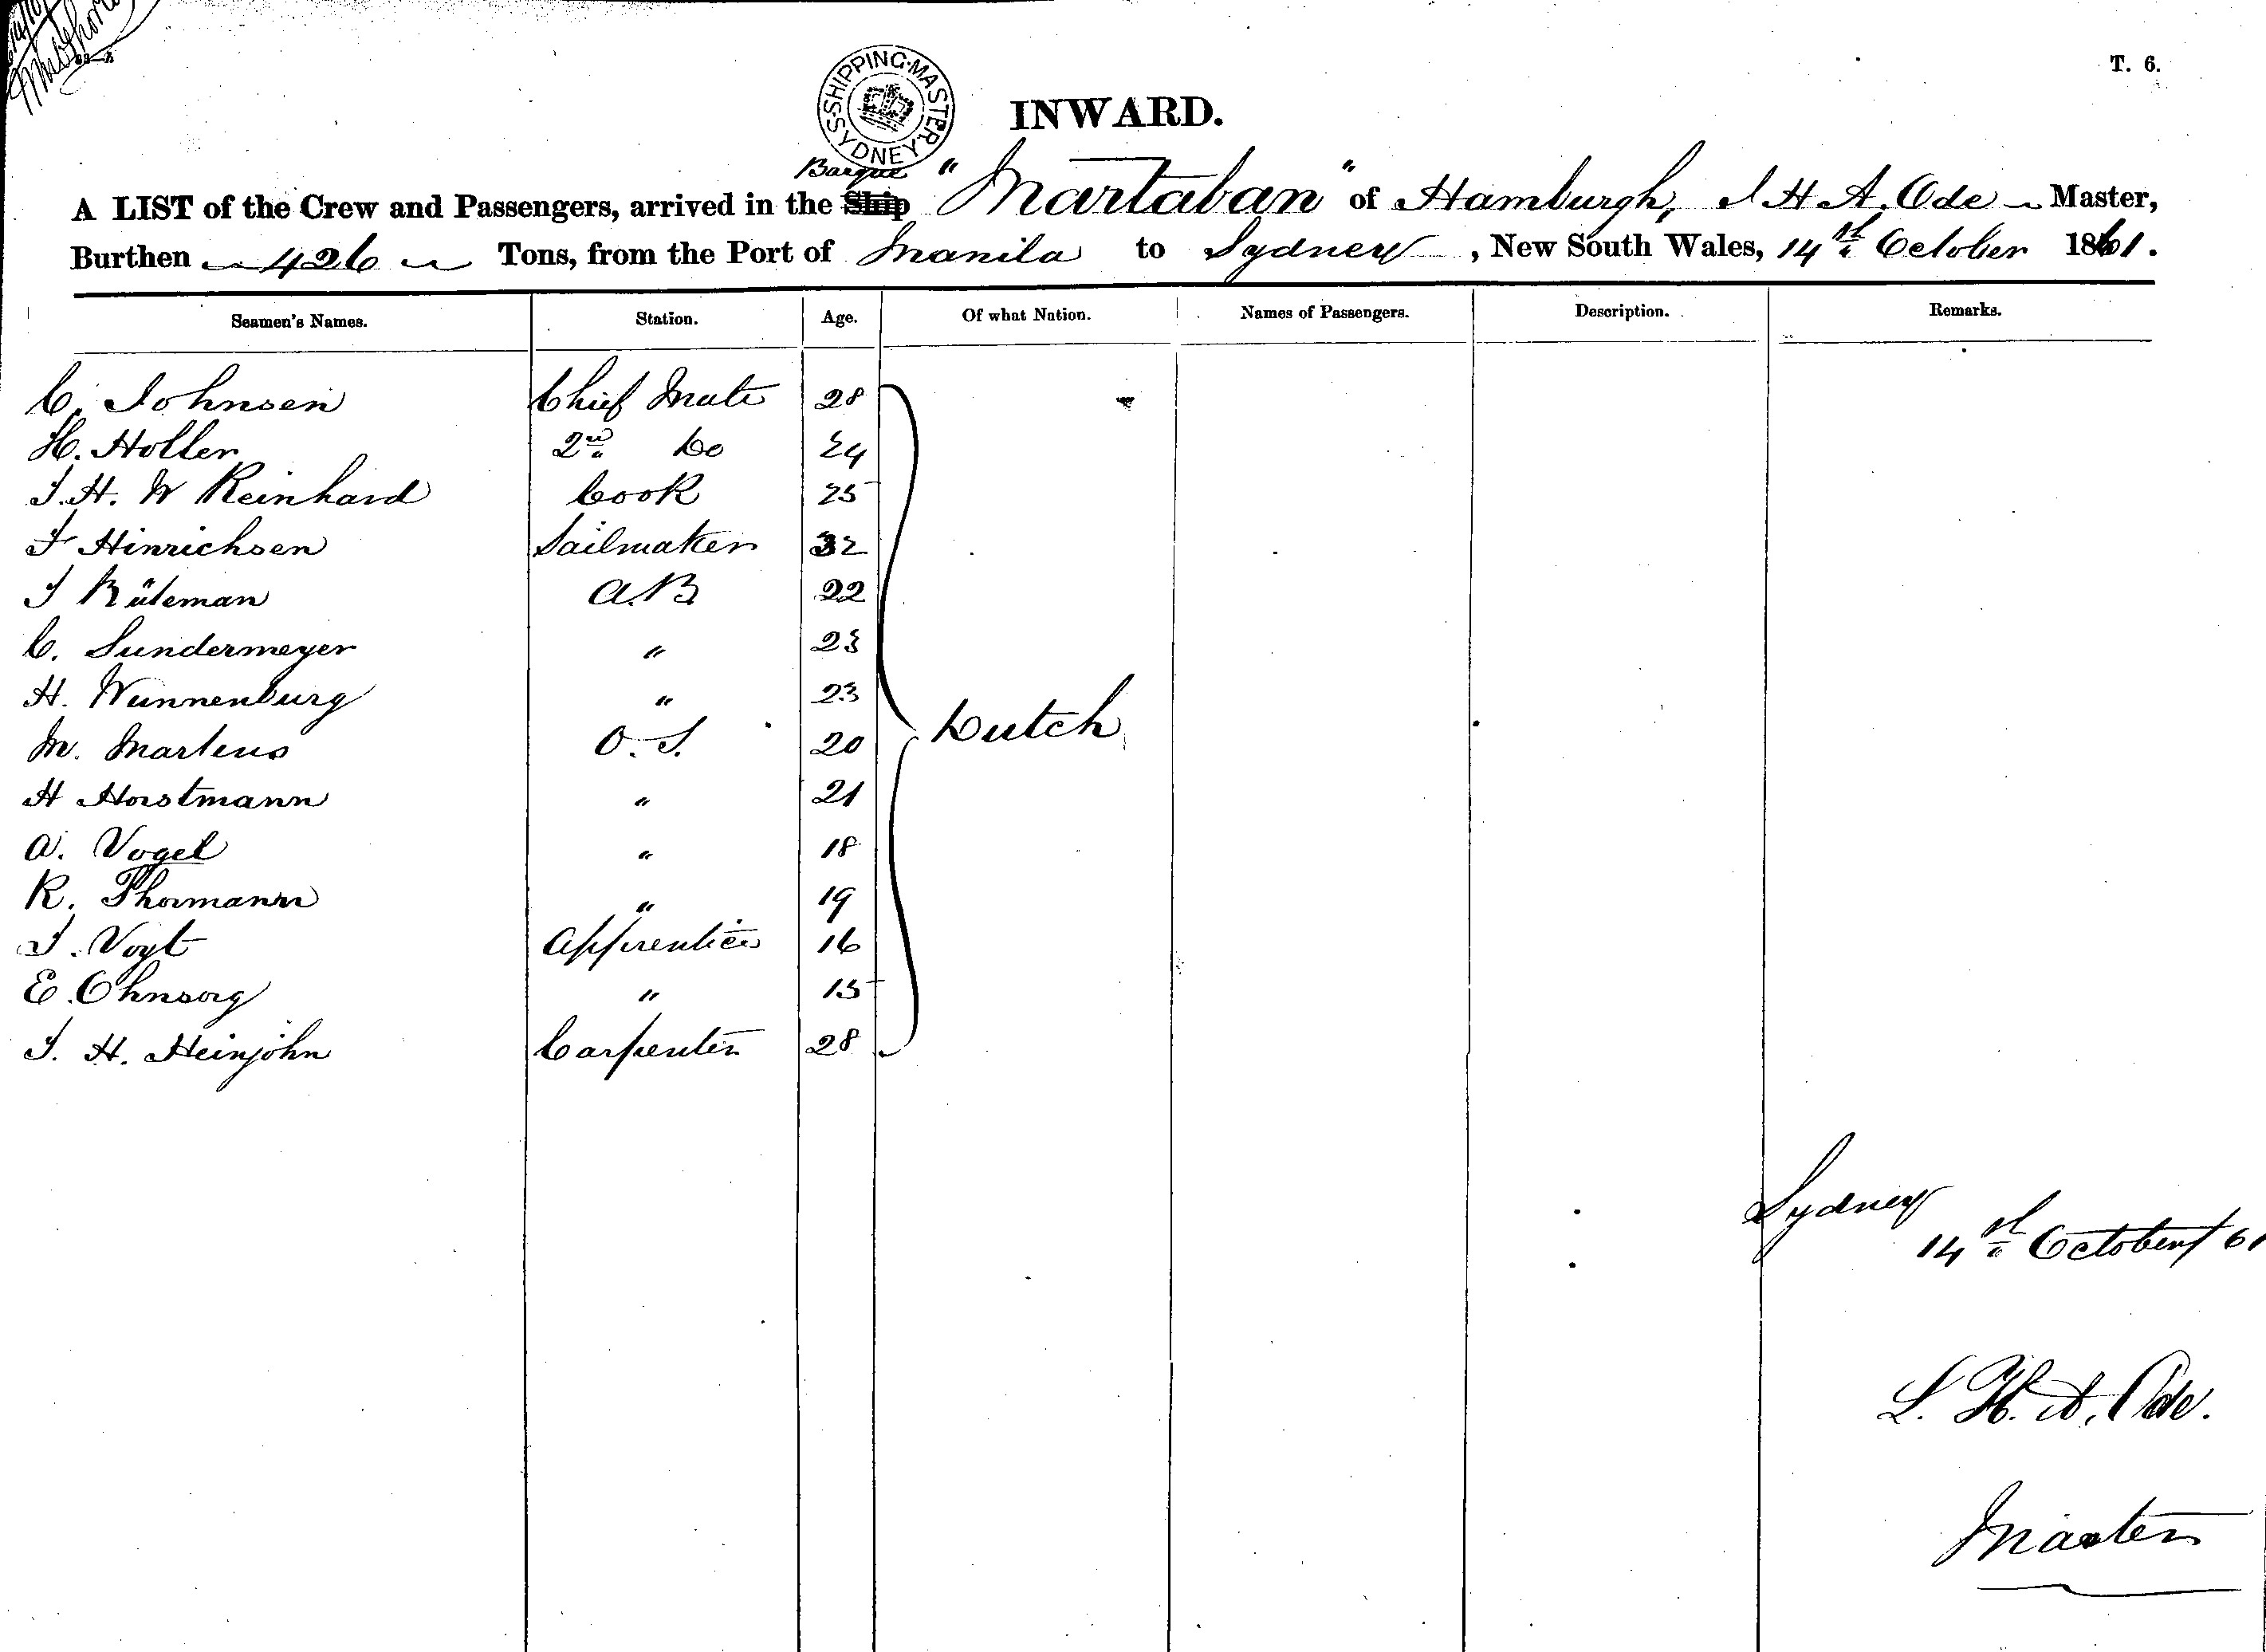 T. 6.
SHIPPING MASTER SYDNEY
INWARD.
Barque
A LIST of the Crew and Passengers, arrived in the Ship "Martaban" of Hamburgh, J H A. Ode Master,
Burthen 426 Tons, from the Port of Manila to Sydney, New South Wales, 14th October 1861.
Seamen's Names. Station. Age. Of what Nation. Names of Passengers. Description. Remarks.
C. Johnsen Chief Mate 28
H. Holler 2nd Do 24
J. H. W Reinhard Cook 25
F Hinrichsen Sailmaker 32
J Rüleman A.B 22
C. Sundermeyer " 23
H. Wunnenburg " 23
M. Martens O. S. 20 Dutch
H Horstmann " 21
A. Vogel " 18
R. Thormann " 19
J. Vogt Apprentice 16
E. Ohnsorg " 15
J. H. Heinjohn Carpenter 28
Sydney
14th October/61
L. H. A. Ode.
Master